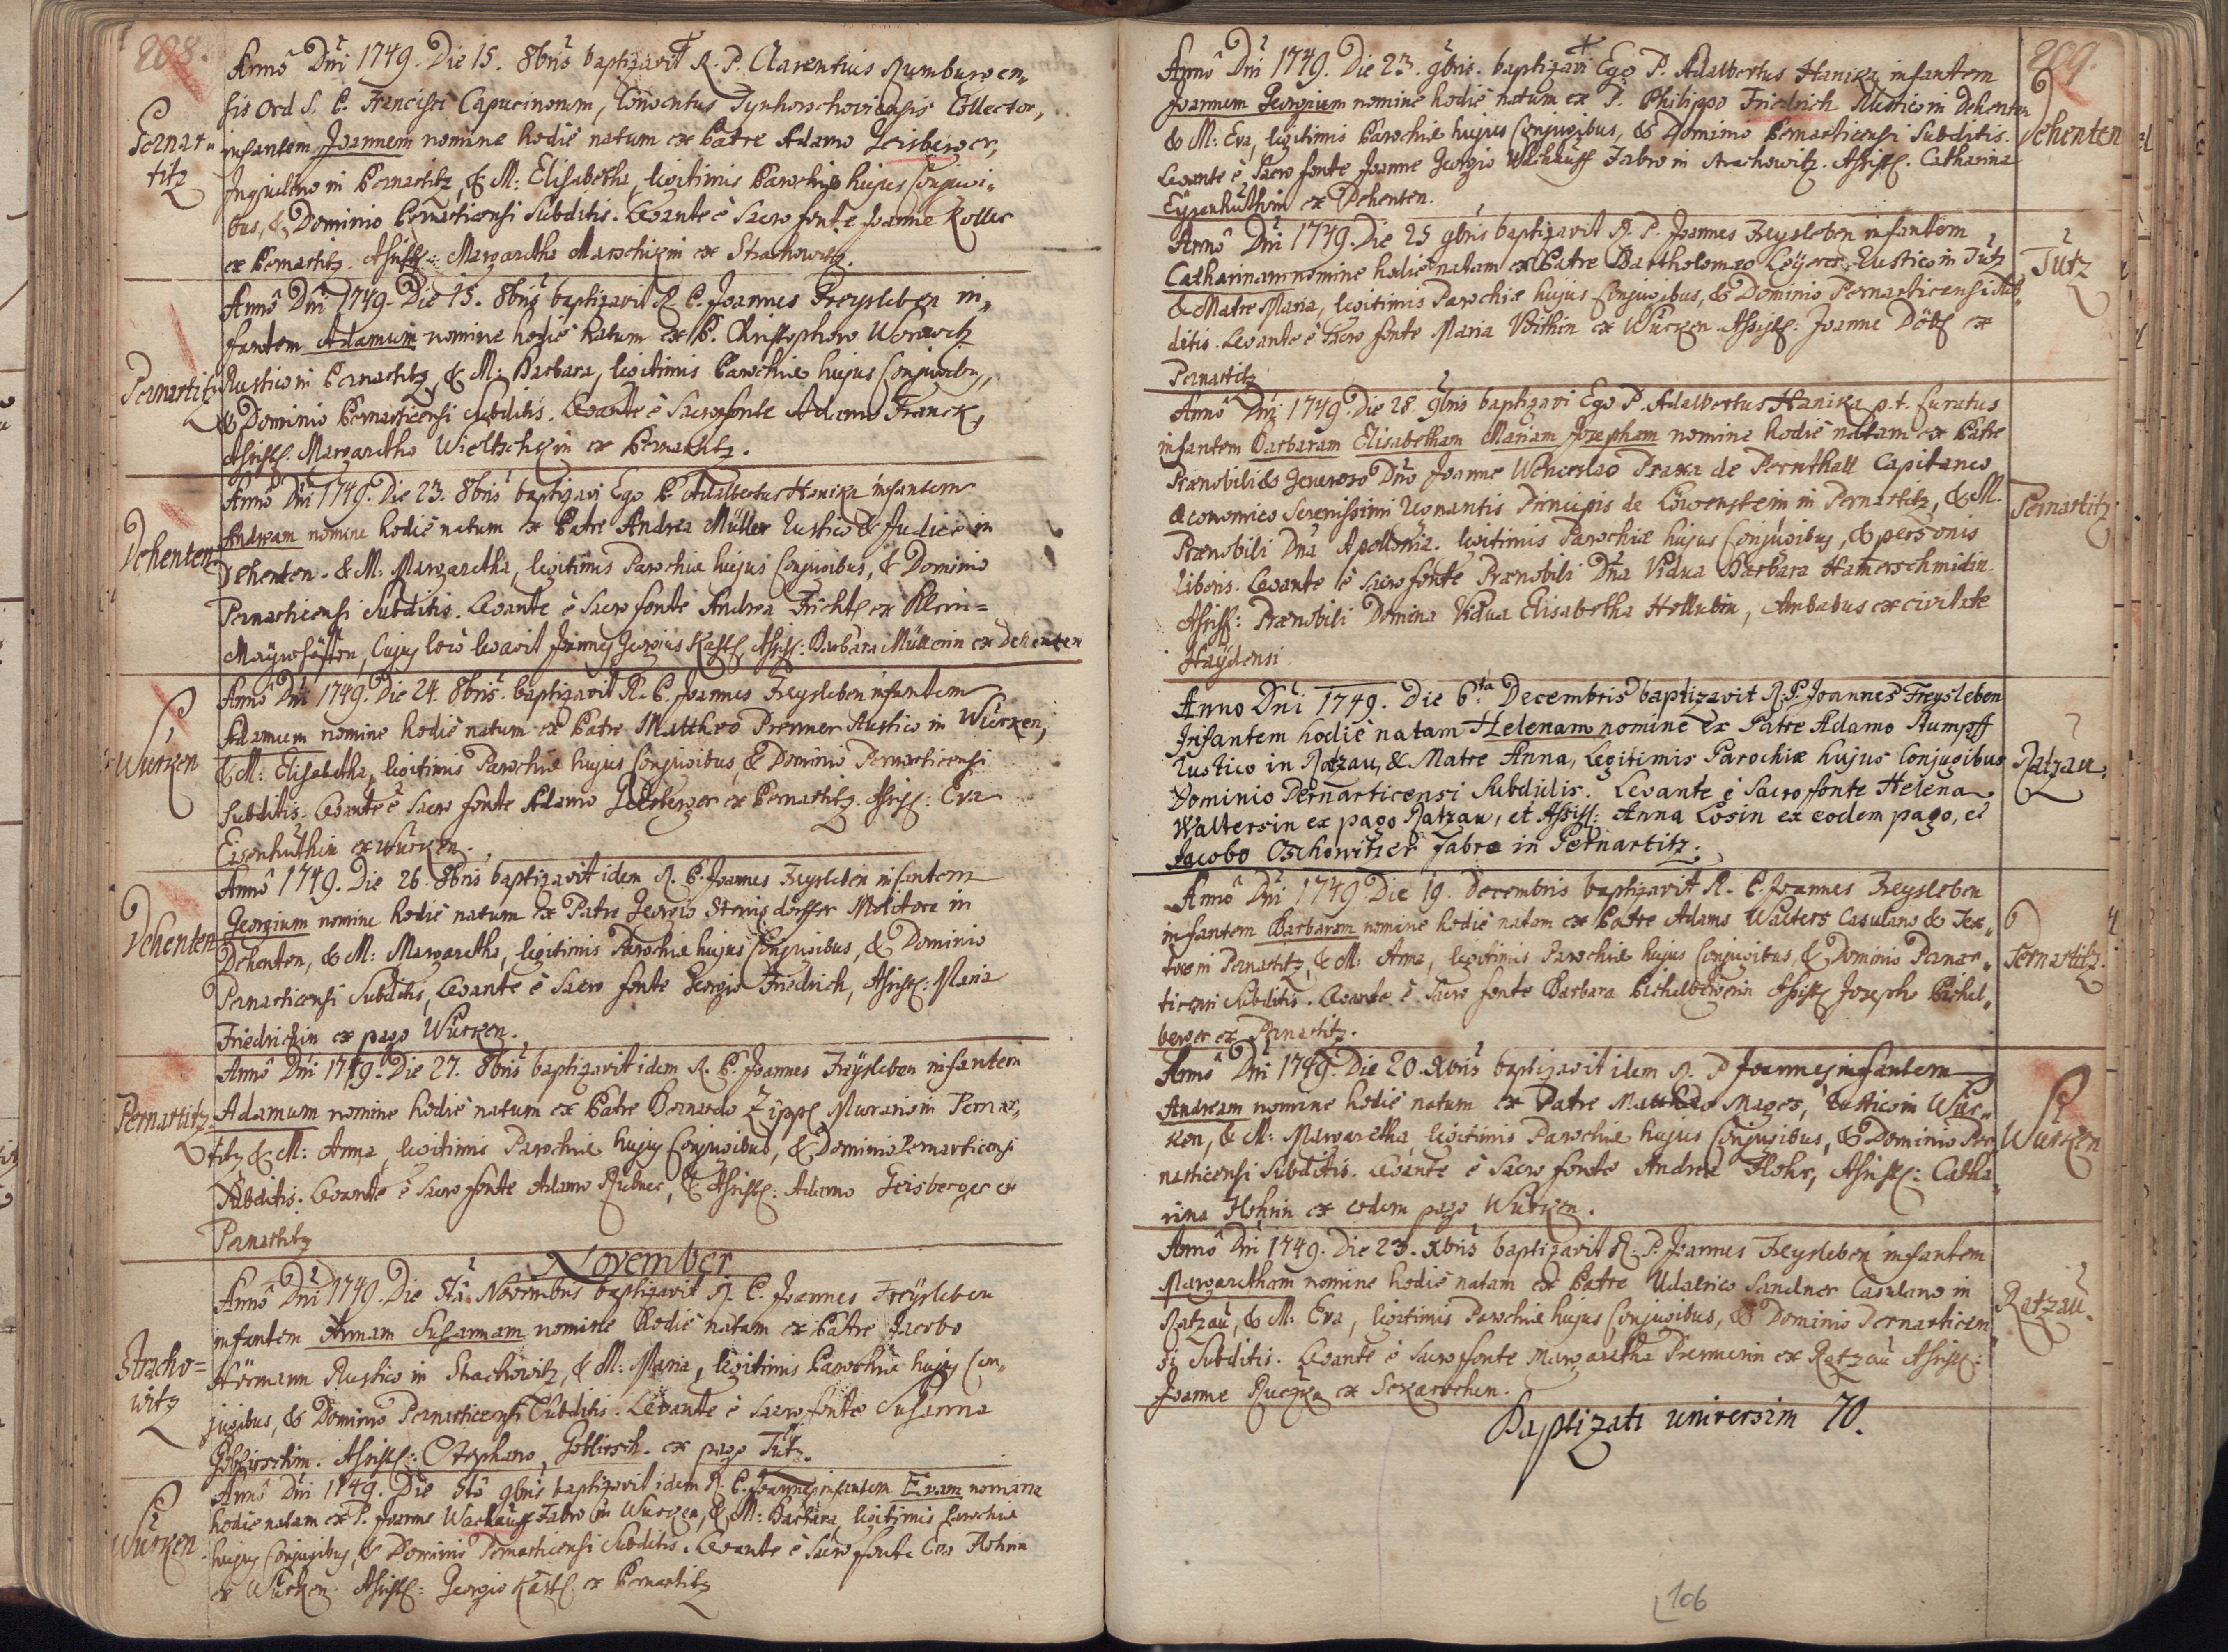 208.
Annô Dni 1749. Die 15. 8bris baptizavit R. P. Clarentius Rumburgen-
sis Ord S. P. Francisci Capucinorum, Conventus Collector,
Pernar-
titz
infantem Joannem nomine hodie natum ex Patre Adamo Geisberger,
Inquilino in Pernartitz, & M: Elisabetha, legitimis Parochiæ hujus Conjugi-
bus, & Dominio Pernarticensi Subditis. Levante è Sacro fonte Joanne Koller
ex Pernartitz. Assist: Margaretha ex Strachowitz.
Annô Dni 1749. Die 15. 8bris baptizavit R. P. Joannes Freysleben in-
fantem Adamum nomine hodie natum ex P. Christophoro Worawetz
Pernartitz
Rustico in Pernartitz, & M: Barbara, legitimis Parochiæ hujus Conjugibus,
& Dominio Pernarticensi Subditis. Levante è Sacro fonte Adamo Franck,
Assist. Margaretha ex Pernartitz.
Annô Dni 1749. Die 23. 8bris baptizavi Ego P. Adalbertus Hanika infantem
Dehenten
Andream nomine hodie natum ex Patre Andrea Müller Rustico & Judice in
Dehenten. & M: Margaretha, legitimis Parochiæ hujus Conjugibus, & Dominio
Pernarticensi Subditis. Levante è Sacro fonte Andrea ex Klein=
Mayerhöfen, Cujus loco levavit Joannes Georgius Kastl, Assist: Barbara Müllerin ex Dehenten
Annô Dni 1749. Die 24. 8bris. baptizavit R. P. Joannes Freysleben infantem
Adamum nomine hodie natum ex Patre Matthæo Prenner Rustico in Würken,
Würken
& M: Elisabetha, legitimis Parochiæ hujus Conjugibus, & Dominio Pernarticensi
Subditis. Levante è Sacro fonte Adamo Geisberger ex Pernartitz. Assist: Eva
Eisenhuthin ex Würken.
Annô 1749. Die 26. 8bris baptizavit idem R. P. Joannes Freysleben infantem
Dehenten
Georgium nomine hodie natum ex Patre Georgio Molitore in
Dehenten, & M: Margaretha, legitimis Parochiæ hujus Conjugibus, & Dominio
Pernarticensi Subditis, Levante è Sacro fonte Georgio Friedrich, Assist: Maria
Friedrichin ex pago Würken.
Annô Dni 1749. Die 27. 8bris baptizavit idem R. P. Joannes Freysleben infantem
Pernartitz.
Adamum nomine hodie natum ex Patre Bernardo Zippl Murario in Pernar-
titz, & M: Anna, legitimis Parochiæ hujus Conjugibus, & Dominio Pernarticensi
Subditis. Levante è Sacro fonte Adamo & Assist: Adamo Geisberger ex
Pernartitz
November
Annô Dni 1749. Die Novembris baptizavit R. P. Joannes Freysleben
infantem Annam Susannam nomine hodie natam ex Patre Jacobo
Stracho=
witz
Hörmann Rustico in Strachowitz, & M: Maria, legitimis Parochiæ hujus Con-
jugibus, & Dominio Pernarticensi Subditis. Levante è Sacro fonte Susanna
Assist: Stephano ex pago Tütz.
Annô Dni 1749. Die 9bris baptizavit idem R. P. Joannes infantem Evam nomine
Würken
hodie natam ex P. Joanne Wachauff Fabro in Würken, & M: Barbara, legitimis Parochiæ
hujus Conjugibus, & Dominio Pernarticensi Subditis. Levante è Sacro fonte Eva
ex Würken. Assist: Georgio Kastl ex Pernartitz
209.
Annô Dni 1749. Die 23. 9bris. baptizavi Ego P. Adalbertus Hanika infantem
Joannem Georgium nomine hodie natum ex P. Philippo Friedrich Rustico in Dehenten
Dehenten
& M: Eva, legitimis Parochiæ hujus Conjugibus, & Dominio Pernarticensi Subditis.
Levante è Sacro fonte Joanne Georgio Wachauff Fabro in Strachowitz. Assist. Catharina
Eysenhuthin ex Dehenten.
Annô Dni 1749. Die 25 9bris baptizavit R. P. Joannes Freysleben infantem
Catharinam nomine hodie natam ex Patre Bartholomæo Rustico in Tütz
Tütz
& Matre Maria, legitimis Parochiæ hujus Conjugibus, & Dominio Pernarticensi Sub-
ditis. Levante è Sacro fonte Maria ex Würken. Assist: Joanne ex
Pernartitz
Annô Dni 1749. Die 28. 9bris baptizavi Ego P. Adalbertus Hanika p. t. Curatus
infantem Barbaram Elisabetham Mariam Josepham nomine hodie natam ex Patre
Prænobili & Generoso Dno Joanne Wenceslao Praxa de Pernthall Capitaneo
Pernartitz
Œconomico Serenissimi Regnantis Principis de Löwenstein in Pernartitz, & M.
Prænobili Dna Apollonia. legitimis Parochiæ hujus Conjugibus, & personis
liberis. Levante è Sacro fonte Prænobili Dna Vidua Barbara Hamerschmidin.
Assist: Prænobili Domina Vidua Elisabetha Hollubin, Ambabus ex civitate
Haydensi.
Anno Dni 1749. Die 6ta Decembris baptizavit R. P. Joannes Freysleben
Infantem hodie natam Helenam nomine ex Patre Adamo Rumpff
Ratzau.
Rustico in Ratzau, & Matre Anna, Legitimis Parochiæ hujus Conjugibus
Dominio Pernarticensi Subditis. Levante è Sacro fonte Helena
Waltersin ex pago Ratzau, et Assist: Anna Losin ex eodem pago, et
Jacobo Oschowitzer Fabro in Pernartitz.
Annô Dni 1749 Die 19. Decembris baptizavit R. P. Joannes Freysleben
infantem Barbaram nomine hodie natam ex Patre Adamo Walters Casulano & Tex-
Pernartitz.
tore in Pernartitz, & M: Anna, legitimis Parochiæ hujus Conjugibus, & Dominio Pernar-
ticensi Subditis. Levante è Sacro fonte Barbara Pichelbergerin Assist Josepho Pichel-
berger ex Pernartitz.
Annô Dni 1749. Die 20. Xbris baptizavit idem R. P Joannes infantem
Andream nomine hodie natum ex Patre Matthæo Mager, Rustico in Wür-
Würken
ken, & M: Margaretha, legitimis Parochiæ hujus Conjugibus, & Dominio Per-
narticensi Subditis. Levante è Sacro fonte Andrea Flohr, Assist: Catha-
rina ex eodem pago Würken.
Annô Dni 1749. Die 23. Xbris baptizavit R. P. Joannes Freysleben infantem
Margaretham nomine hodie natam ex Patre Udalrico Sandner Casulano in
Ratzau.
Ratzau, & M: Eva, legitimis Parochiæ hujus Conjugibus, & Dominio Pernarticen-
si Subditis. Levante è Sacro fonte Margaretha Prennerin ex Ratzau Assist:
Joanne ex
Baptizati universim 70.
106